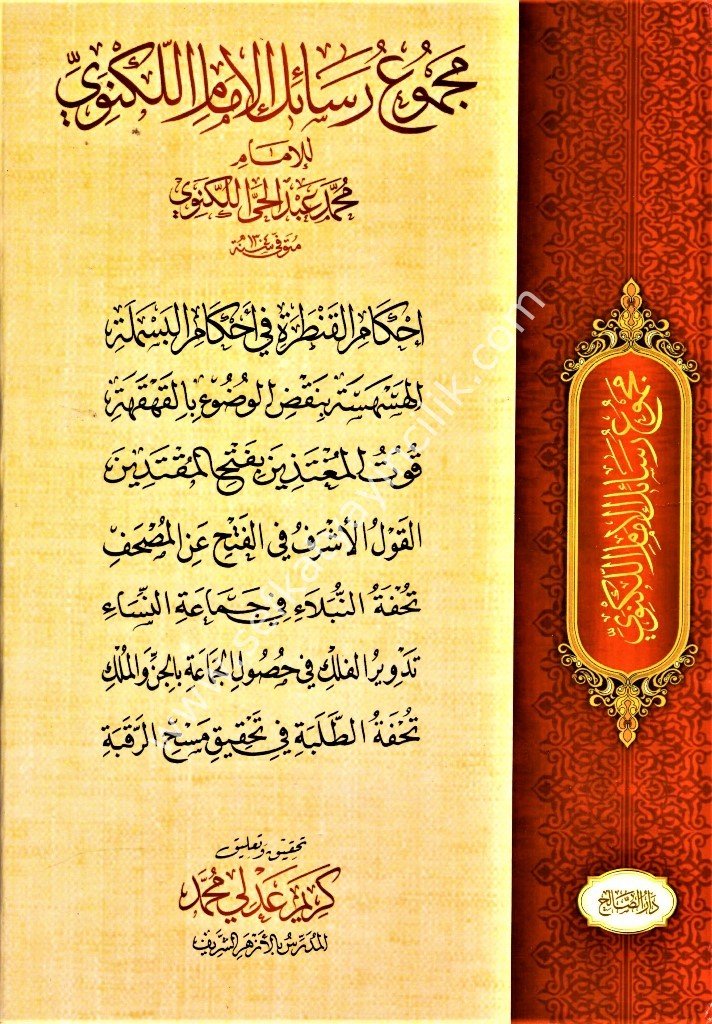 مَجْمُوعُ رَسَائِلِ الإِمَامِ اللَّكْنَوِيِّ
للإمام
مُحَمَّد عَبْد الحَيّ اللَّكْنَوِي
متوفى سنة ١٣٠٤ هـ
إحكام القنطرة في أحكام البسملة
الهسهسة بنقض الوضوء بالقهقهة
قوت المغتذين بفتح المقتدين
القول الأشرف في الفتح عن المصحف
تحفة النبلاء في جماعة النساء
تدوير الفلك في حصول الجماعة بالجن والملك
تحفة الطلبة في تحقيق مسح الرقبة
تحقيق وتعليق
كريم عدلي محمد
المدرس بالأزهر الشريف
مجموع رسائل الإمام اللكنوي
دار الصالح